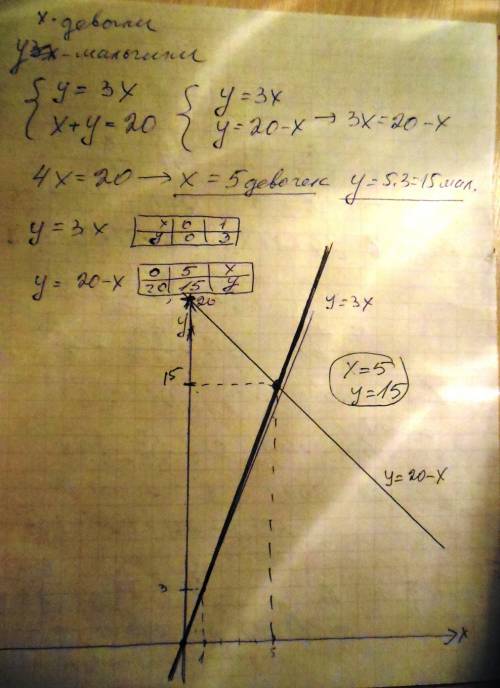 x - девочки
y - мальчики
{ y = 3x { y = 3x
x + y = 20 y = 20 - x → 3x = 20 - x
4x = 20 → x = 5 девочек y = 5·3 = 15 мал.
y = 3x x 0 1
y 0 3
y = 20 - x 0 5 x
20 15 y
20
y
y = 3x
15
x = 5
y = 15
y = 20 - x
3
1 5 x